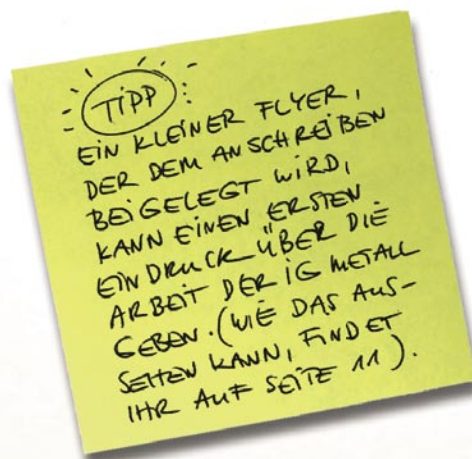 TiPP
EiN KLEiNER FLYER,
DER DEM ANSCHREiBEN
BEiGELEGT WiRD,
KANN EiNEN ERSTEN
EiNDRUCK ÜBER DiE
ARBEiT DER iG METALL
GEBEN. (WiE DAS AUS-
SEHEN KANN, FiNDET
iHR AUF SEiTE 11).